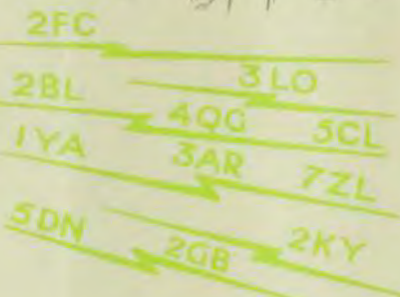 2FC
3LO
2BL
4QG
5CL
1YA
3AR
7ZL
5DN
2GB
2KY